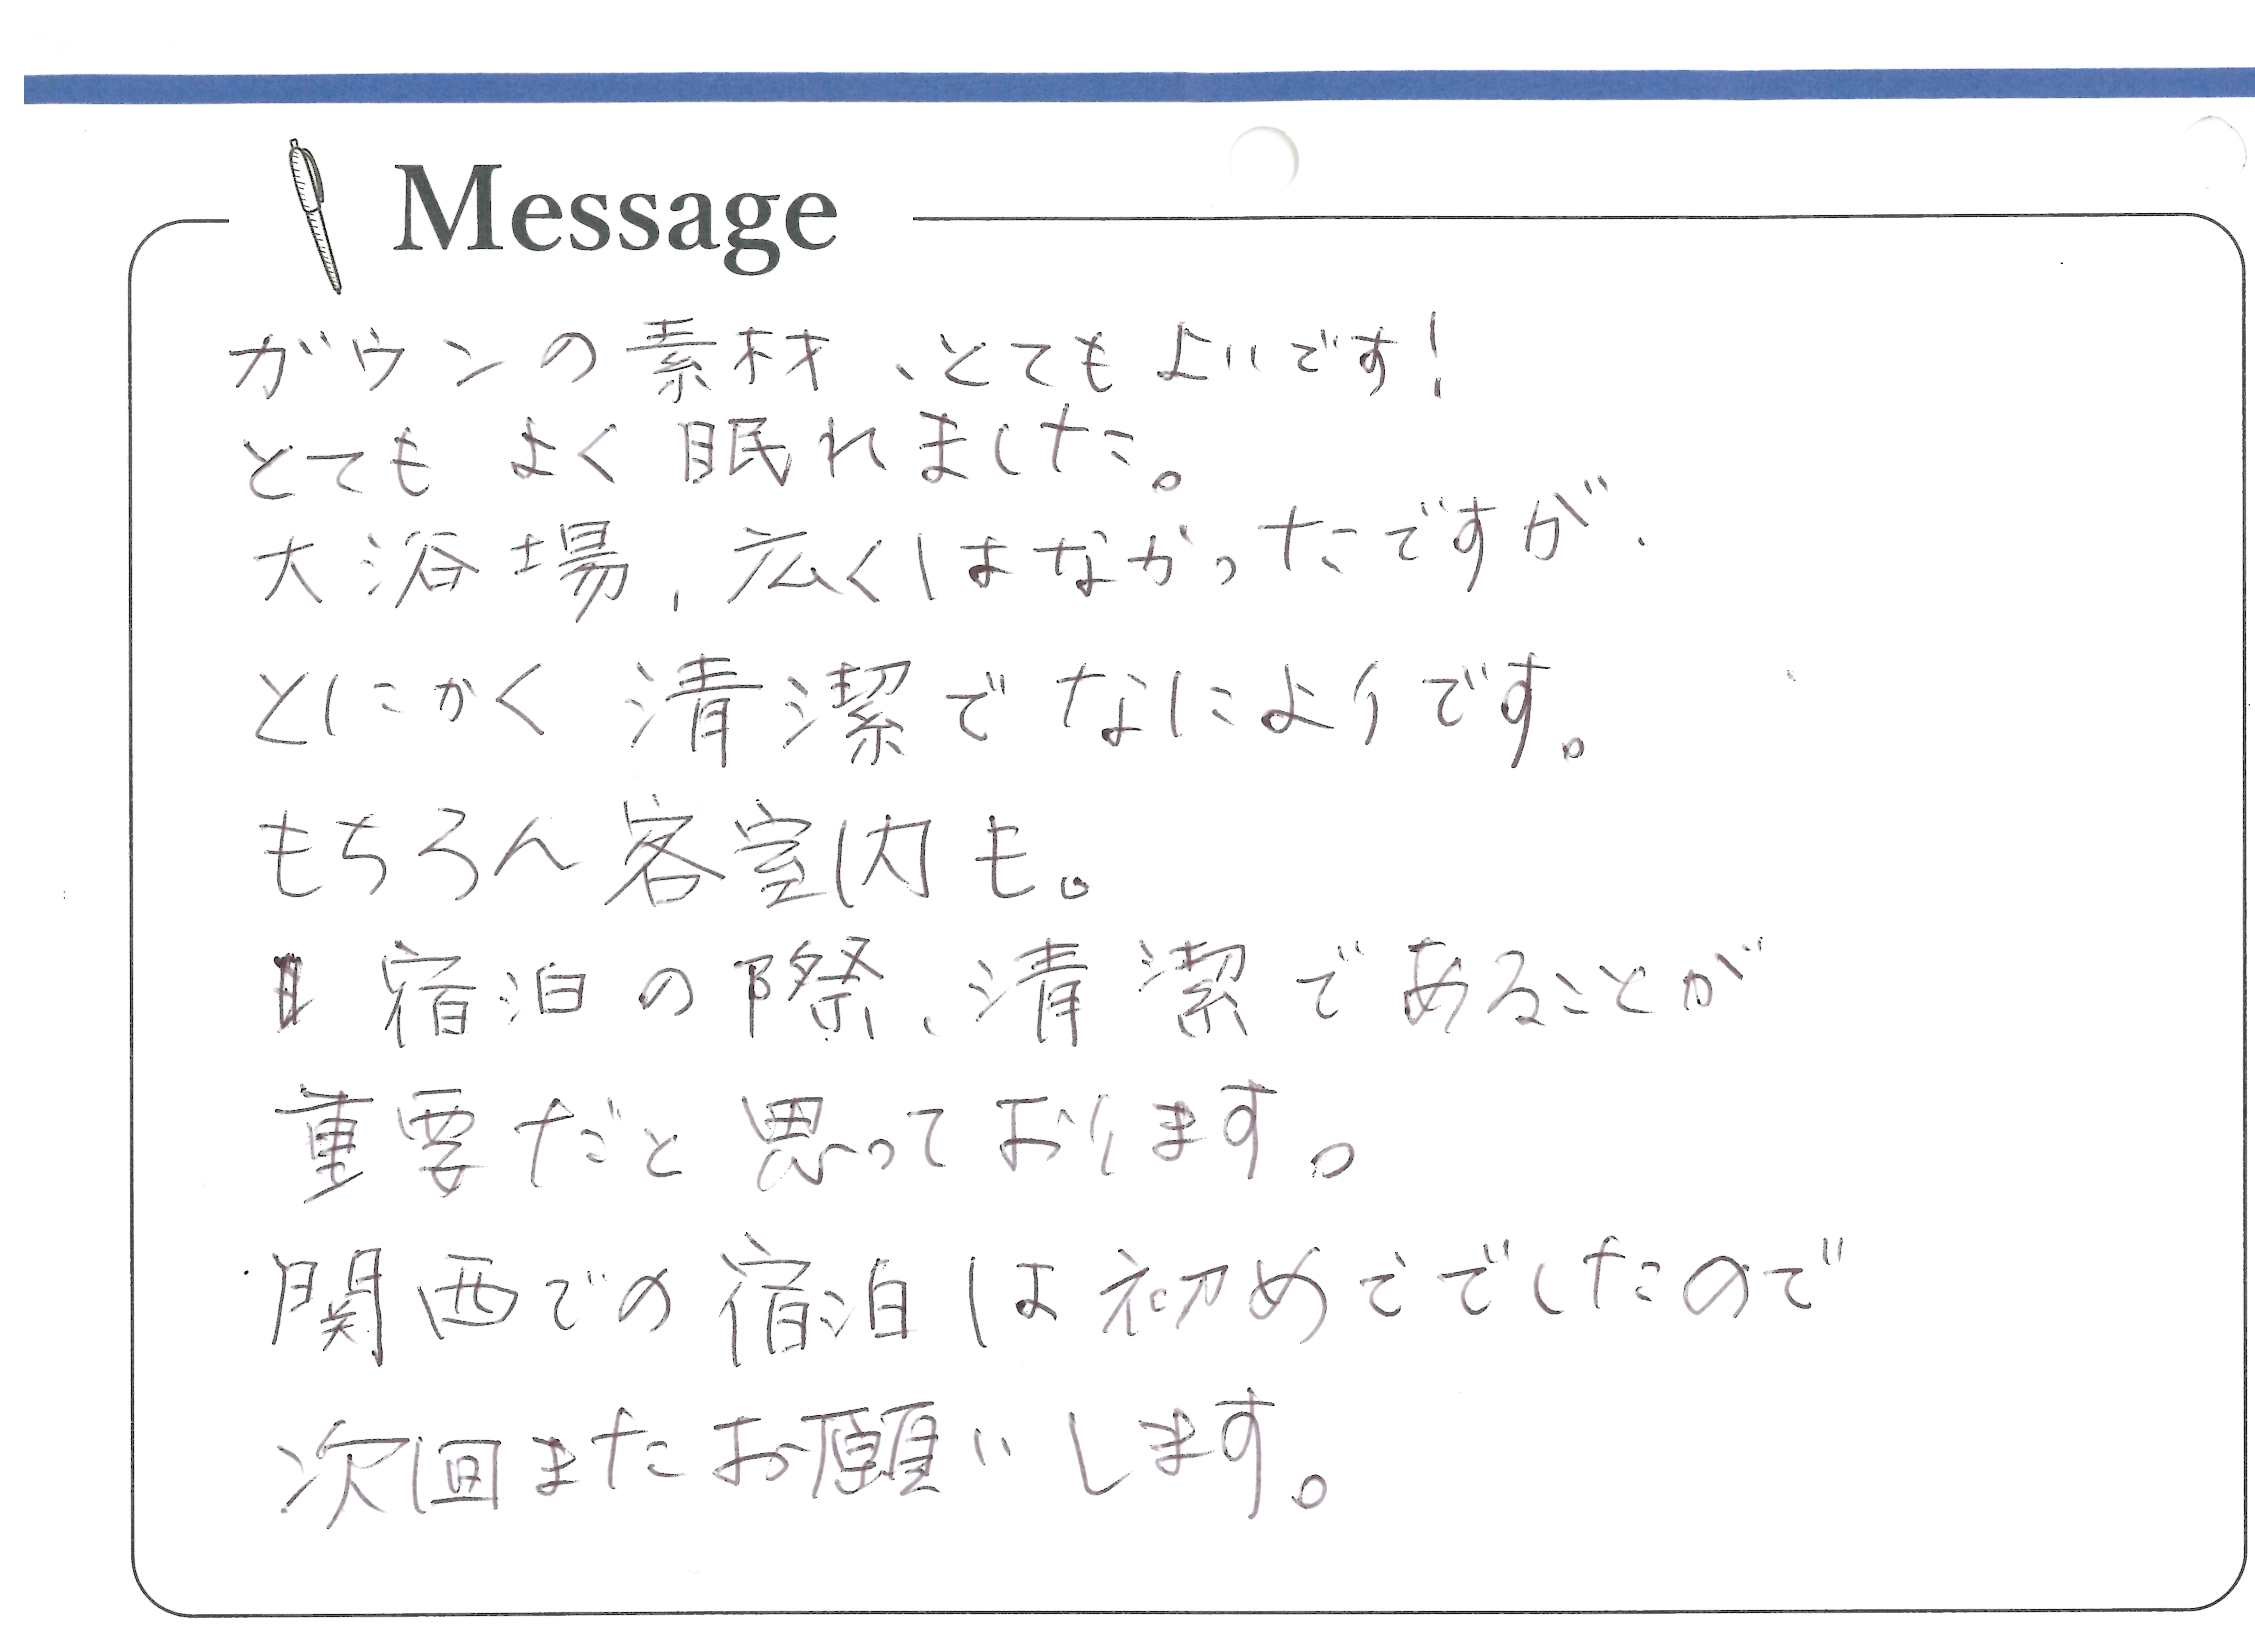 Message
ガウンの素材、とてもよいです!
とてもよく眠れました。
大浴場、広くはなかったですが、
とにかく清潔でなによりです。
もちろん客室内も。
宿泊の際、清潔であることが
重要だと思っております。
関西での宿泊は初めてでしたので
次回またお願いします。